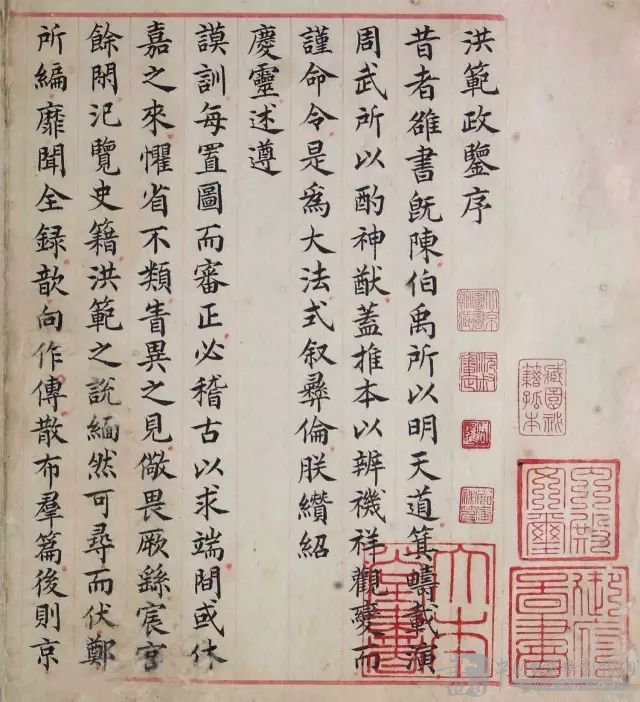 洪範政鑒序
昔者雒書旣陳伯禹所以明天道箕疇載演
周武所以酌神猷蓋推本以辨禨祥觀變而
謹命令是爲大法式叙彝倫朕纘紹
慶靈述遵
謨訓每置圖而審正必稽古以求端間或休
嘉之來懼省不類眚異之見儆畏厥繇宸宫
餘閑氾覽史籍洪範之說緬然可尋而伏鄭
所編靡聞全録歆向作傳散布羣篇後則京
藏園秘籍孤本
內殿文璽
御府圖書
大本堂書